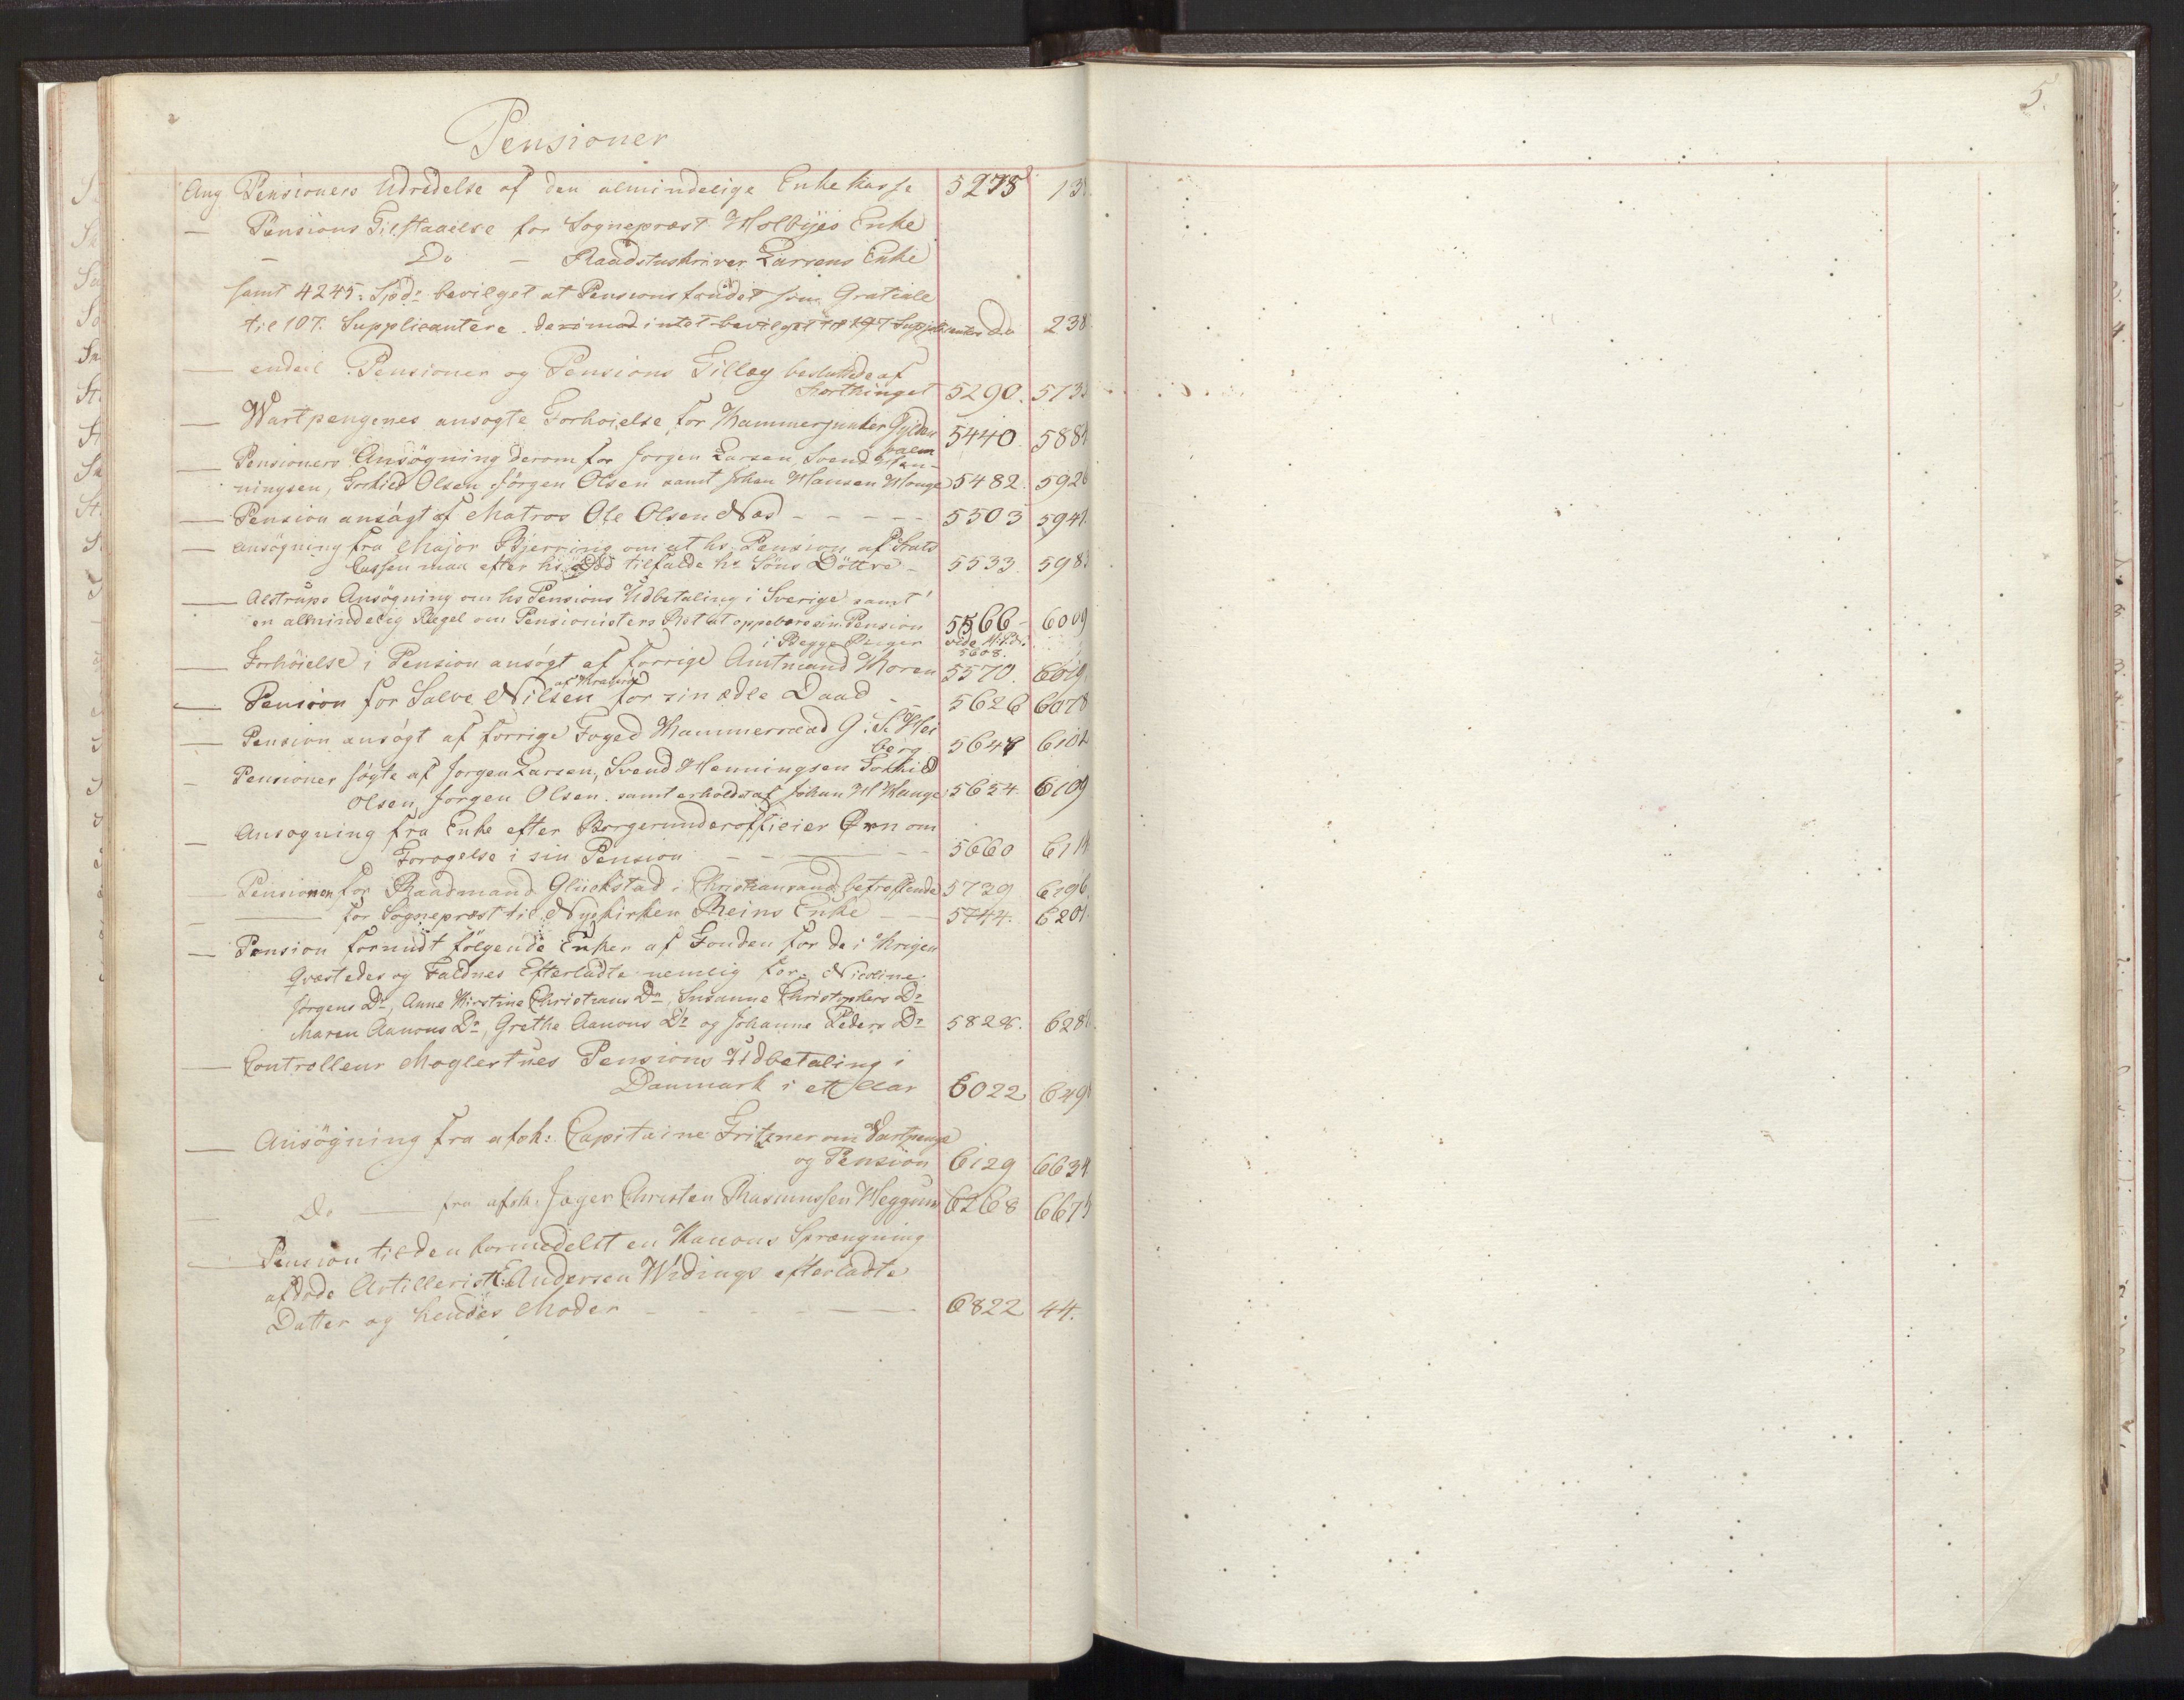 5.
Pensioner
Ang Pensioners Udredelse af den almindelige Enkekasse 5275 13
— Pensions Tilstaaelse for Sogneprest Holbyes Enke
— Do — Raadstuskriver Larsens Enke
samt 4245 Spd. bevilget at Pensionsfondet som Gratiale
til 107. Supplicantere. derimod intet bevilget til 197 Supplicanter Do 238
— endeel Pensioner og Pensions Tillæg besluttede af
Storthinget 5290. 573
— Wartpengenes ansøgte Forhoielse for Kammerjunker Gylden
palm 5440. 588
— Pensioners Ansögning derom for Jorgen Larsen, Svend Hen-
ningsen, Torkild Olsen Jörgen Olsen samt Johan Hansen Hauge 5482. 592
— Pension ansögt af Matros Ole Olsen Næs - - - - - 5503 594
— Ansögning fra Major Bjerring om at hs. Pension af Stats
Cassen maa efter hs. Död tilfalde hs. Söns Döttre - 5533 598
— Alstrups Ansögning om hs Pensions Udbetaling i Sverige samt
en allmindelig Regel om Pensionisters Ret at oppebære sin Pension 5566 - 6009
i Begge Riger vide
5608.
— Forhöielse i Pension ansögt af forrige Amtmand Koren 5570. 6019
af Kragerö
— Pension for Salve Nilsen for sin ædle Daad - 5626 6078
— Pension ansögt af forrige Foged Kammerraad G: S. Hei
berg 5648 610
— Pensioner sögte af Jorgen Larsen, Svend Henningsen Torkild
Olsen, Jorgen Olsen. samt erholdt af Johan H Hauge 5654. 6109
— Ansogning fra Enke efter Borgerunderofficier Ørn om
Forogelse i sin Pension - - — - - 5660 611
— Pensionen for Raadmand Glückstad i Christiansand betreffende 5729 6196
— — for Sogneprest til Nykirken Reins Enke - - - 5744. 620
— Pension forundt fölgende Enker af Fonden for de i Krigen
Qvæstedes og Faldnes Efterladte nemlig for Nicoline
Jorgens Dr, Anne Kirstine Christians Dr, Susanne Christophers Dr
Maren Aanons Dr, Grethe Aanons Dr og Johanne Peders Dr 5828. 628
— Controlleur Moglestues Pensions Udbetaling i
Danmark i ett Aar 6022 649
— Ansögning fra afsk: Capitaine Fritzner om Vartpenge
og Pension 6129 6634
— Do — fra afsk. Jæger Christen Rasmussen Heggum 6268 667
— Pension til den formedelst en Kanons Sprængning
afdöde Artillerist E: Andersen Widings efterladte
Datter og hendes Moder - - - - - — 6822 44.